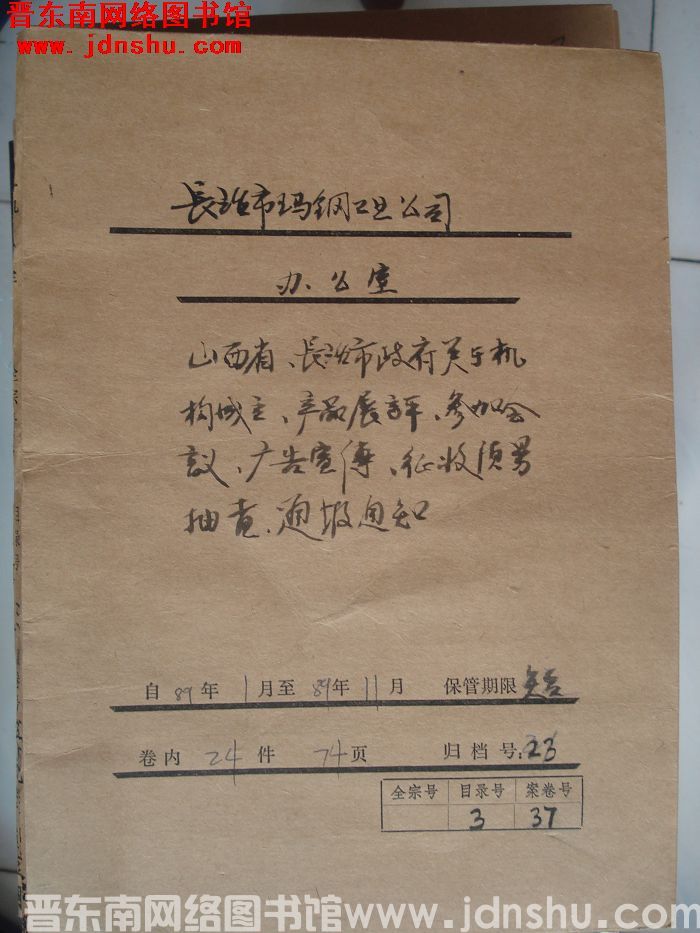 晋东南网络图书馆
www.jdnshu.com
長治市玛钢工业公司
办公室
山西省、長治市政府关于机
构成立、产品展评、参加会
议、广告宣傳、征收
抽查、通报通知
自89年1月至89年11月 保管期限 短
卷内24件74页 归档号:23
全宗号 目录号 案卷号
3 37
晋东南网络图书馆www.jdnshu.com
目录号